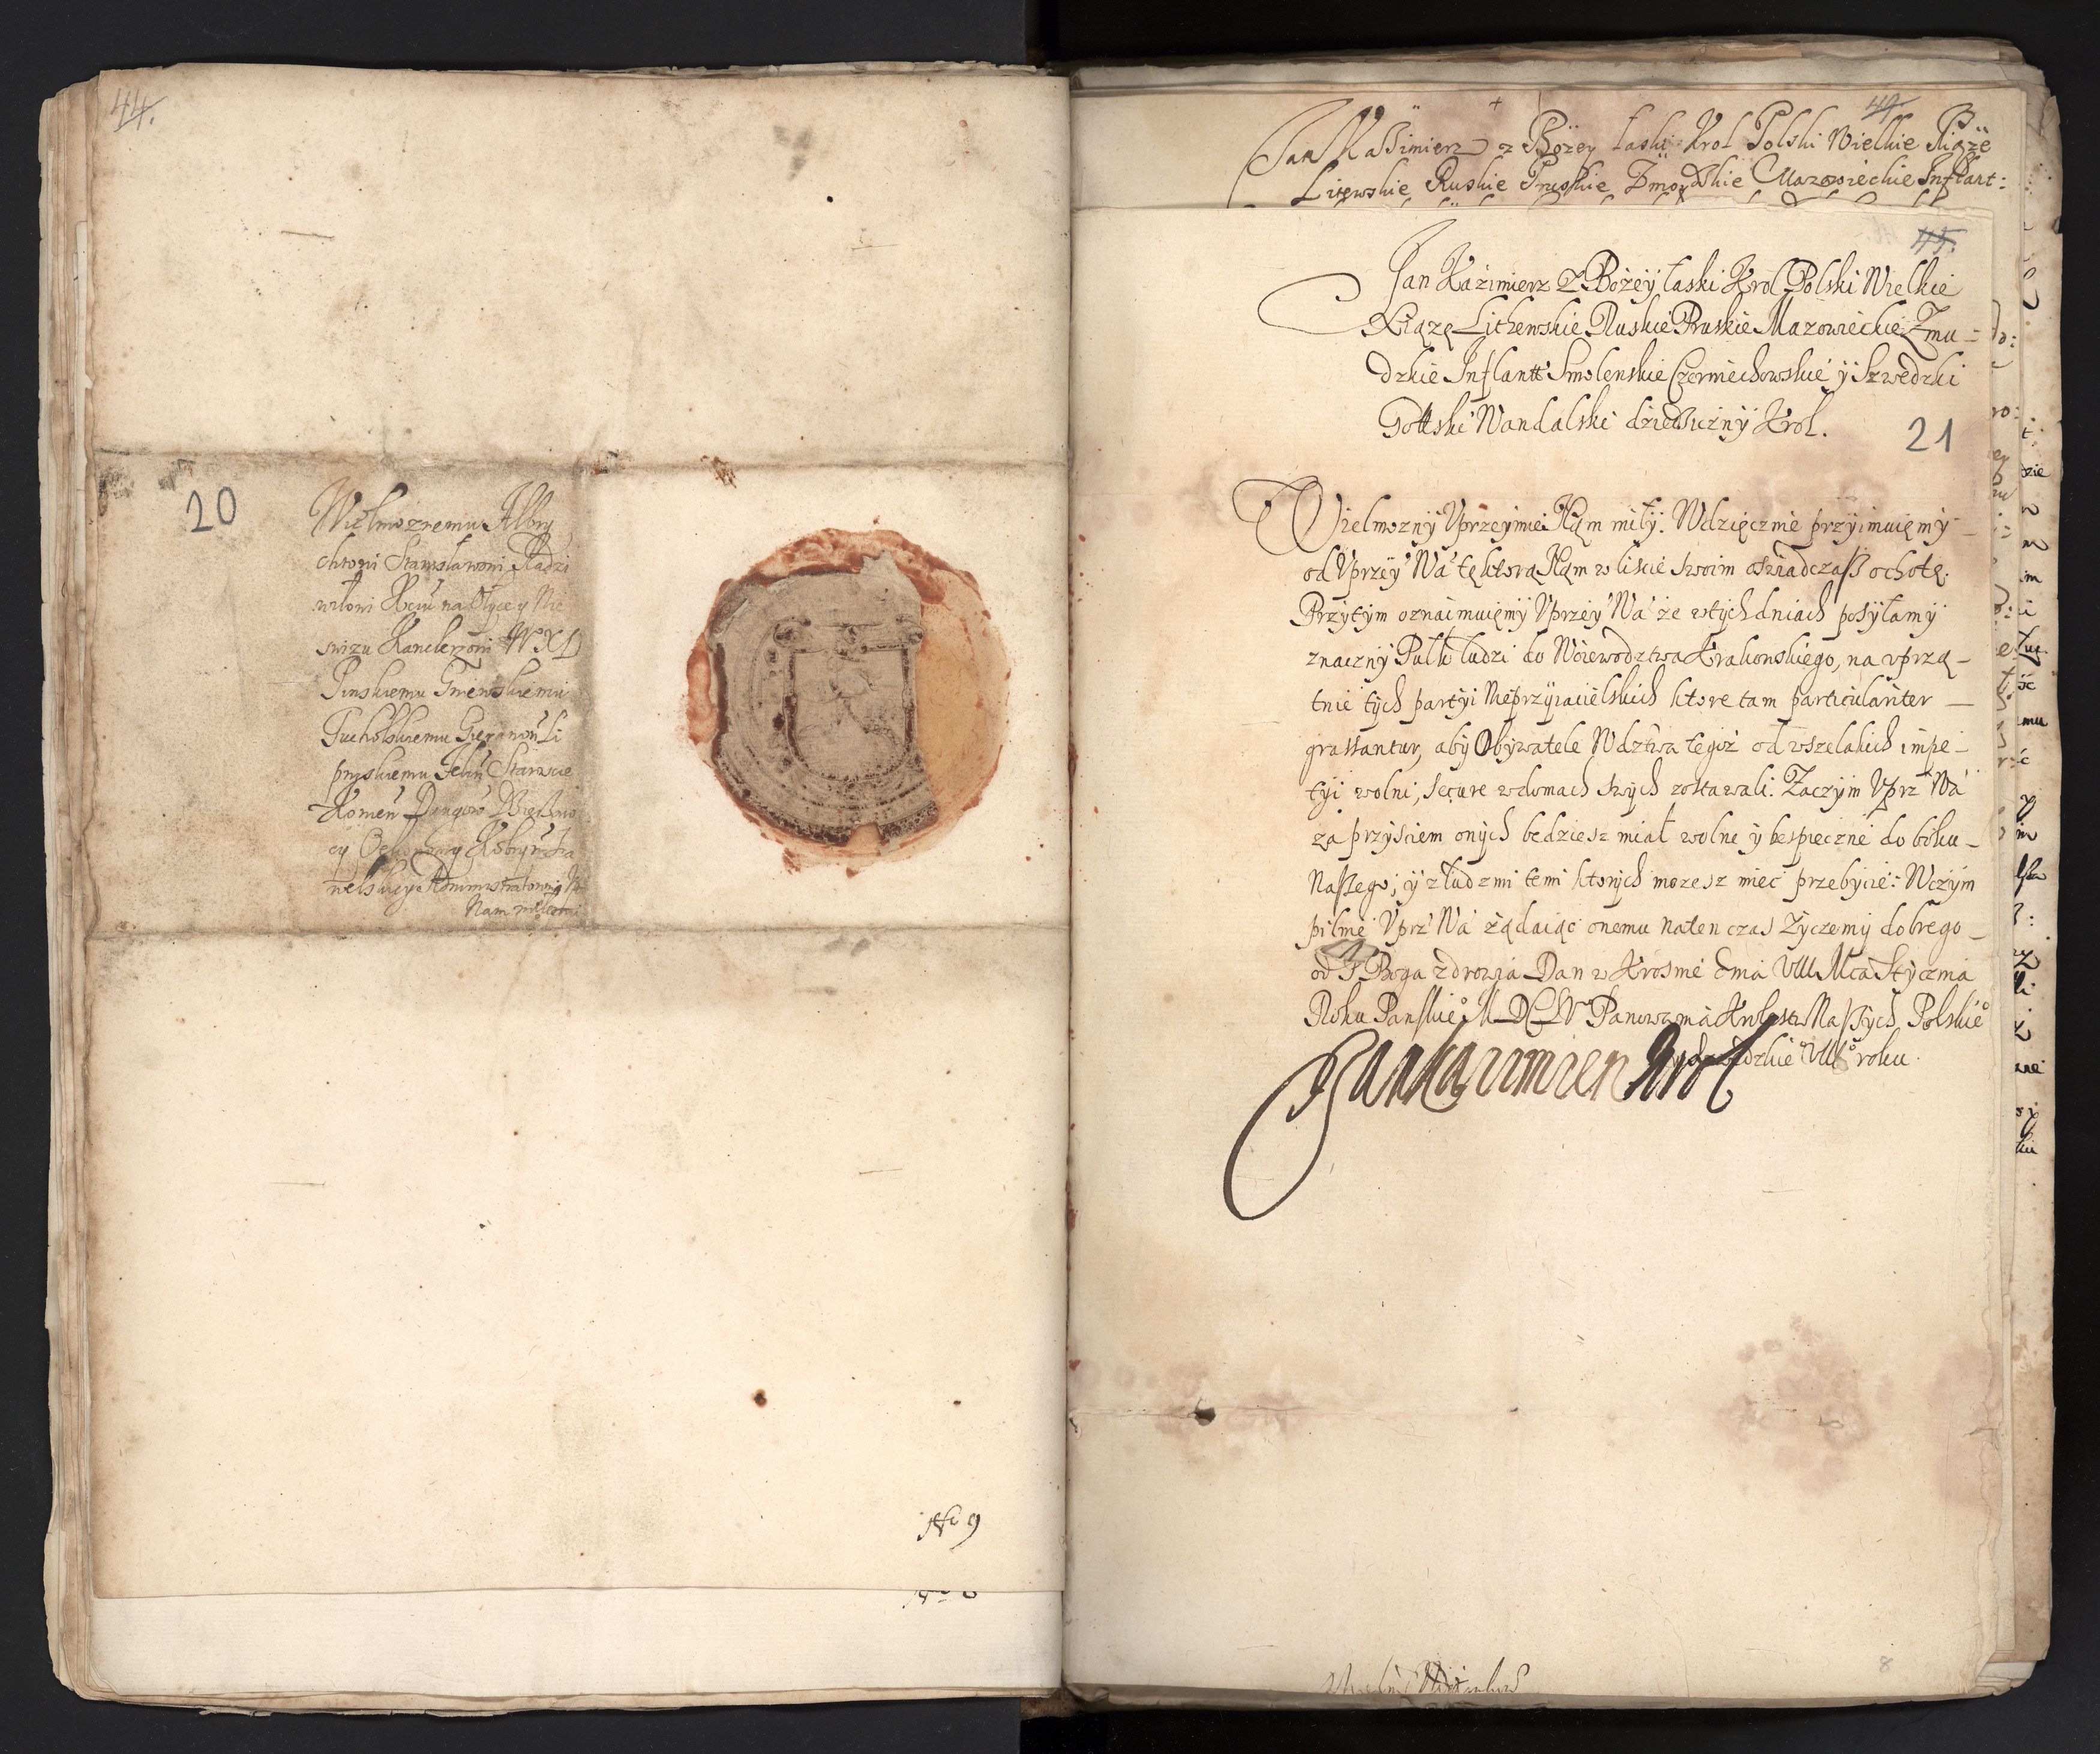 44.
20
Wielmoznemu Albry
chtowi Stanisławowi Radzi
wiłowi Xciu na Ołyce y Nie
swizu Kanclerzowi W X L
Pinskiemu Gniewskiemu
Tucholskiemu Geranonski
Staroscie
Kobryn
Administratorowi
Nam miłemu
No 9
44.
Jan Kazimierz z Bozey łaski Krol Polski Wielkie Xiąże
Litewskie Ruskie Pruskie Zmoydzkie Mazowieckie Inflant:
45.
Jan Kazimierz Z Bozey łaski Krol Polski Wielkie
Xiąze Lithewskie Ruskie Pruskie Mazowieckie Zmu-
dzkie Inflantt Smolenskie Czerniechowskie y Szwedzki
Gottski Wandalski dziedziczny Krol.
21
Wielmozny Vprzeymie Nąm miły. Wdzięcznie przyimuięmy
od Vprzey Wa tę ktorą Nąm w liscie swoim oswiadczasz ochotę.
Przytym oznaimuięmy Vprzey Wa ze w tych dniach posyłamy
znaczny Pułk ludzi do Woiewodztwa Krakowskiego, na vprzą-
tnie tych partyi Nieprzyiacielskich ktore tam particulariter
grassantur, aby Obywatele Wdztwa tegoz od wszelakich impe-
tyi wolni, secure w domach swych zostawali. Zaczym Vprz Wa
za przysciem onych bedziesz miał wolne y bespieczne do boku
Naszego; y z ludzmi temi ktorych mozesz miec przebycie: W czym
pilnie Vprz Wa ządaiąc onemu na ten czas Zyczemy dobrego
od P Boga zdrowia Dan w Krosnie dnia VIII Mca Stycznia
Roku Panskie M DC LVI Panowania Krolestw Naszych Polskie
y Szwedzkie VIII roku.
Jan Kazimierz Krol
8